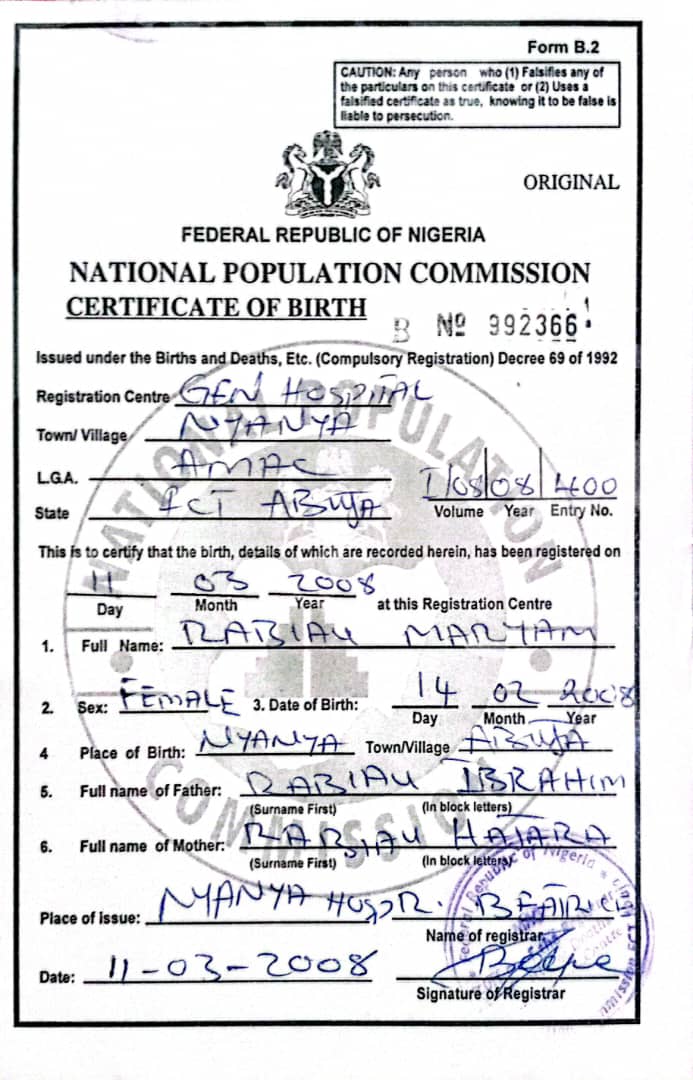 Form B.2
CAUTION: Any person who (1) Falsifies any of
the particulars on this certificate or (2) Uses a
falsified certificate as true, knowing it to be false is
liable to persecution.
ORIGINAL
FEDERAL REPUBLIC OF NIGERIA
NATIONAL POPULATION COMMISSION
CERTIFICATE OF BIRTH
B № 992366
Issued under the Births and Deaths, Etc. (Compulsory Registration) Decree 69 of 1992
Registration Centre GEN HOSPITAL
Town/ Village NYANYA
L.G.A. AMAC
State FCT ABUJA
I/08|08|400
Volume Year Entry No.
This is to certify that the birth, details of which are recorded herein, has been registered on
11 03 2008
Day Month Year at this Registration Centre
1. Full Name: RABIAU MARYAM
2. Sex: FEMALE 3. Date of Birth: 14 02 2008
Day Month Year
4 Place of Birth: NYANYA Town/Village ABUJA
5. Full name of Father: RABIAU IBRAHIM
(Surname First) (In block letters)
6. Full name of Mother: RABIAU HAJARA
(Surname First) (In block letters)
Place of issue: NYANYA HOSP.
Name of registrar
Date: 11-03-2008
Signature of Registrar
NATIONAL POPULATION COMMISSION
Federal Republic of Nigeria